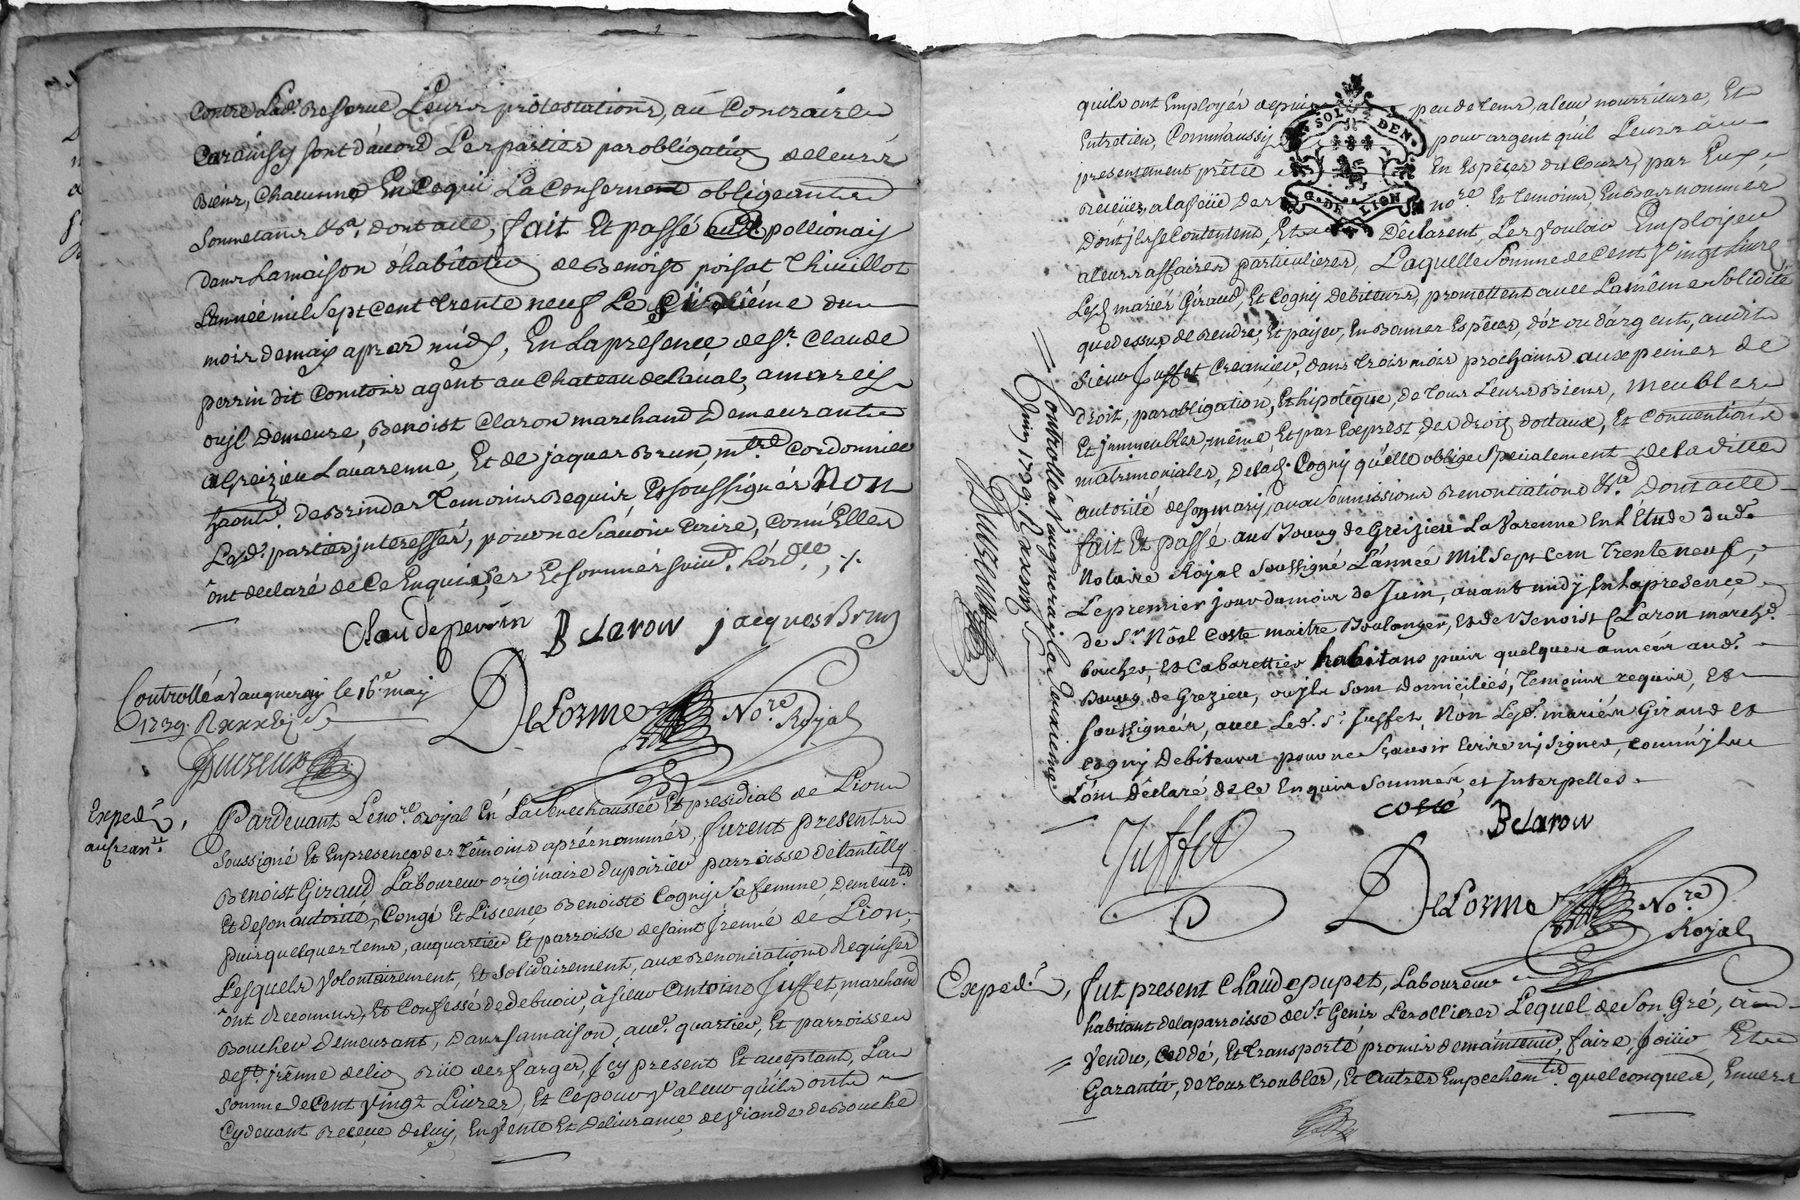 Contre Lad. Reserve Leurs protestations, au Contraire
Carainsy sont d'acord Les parties par obligation de leurs
Biens, Chacunne En Ce qui La Consernent obligeant
Soumetans &a. dont acte, fait Et passé a pollionay
Dans La maison d'habitation de Benoist poisat Thiuillot
L'année mil sept cent trente neuf Le du
mois de may apres midy, En La presence de Sr. Claude
perrin dit Comtois agent au Chateau de Laual, a marcy
ou jl Demeure, Benoist Claron marchand Demeurant
a Greizieu Lauarenne, Et de jaques Brun, mtre Cordonnier
de Brindas Temoins Requis Et soussignés Non
Lesd. parties jnteressés, pour ne Sçauoir Ecrire, comm'Elles
ônt declaré de Ce Enquises Et sommés
Claude perrin B Clarow jacques Brun
Controllé a Vaugneray le 16e may
1739. R
DeLorme Nore Royal
Exped.
au creanr.
Pardeuant Le nore Royal En La Senechaussée Et presidial de Lion
Soussigné Et En presence des têmoins aprés nommés, furent presents
Benoist Giraud Laboureur originaire du poirier parroisse de Lantilly
Et de son autorité, Congé Et Liscence Benoiste Cogny Sa femme, Demeurts
puis quelques tems, au quartier Et parroisse de saint jrenné de Lion,
Lesquels Volontairement, Et Solidairement, aux Renonciations Requises
ônt Reconnus, Et Confessé de debuoir, à sieur Antoine Juffet, marchand
Boucher Demeurant, Dans sa maison, aud. quartier, Et parroisse
de St. jrênne de lion Rüe des farges, Jcy present Et acceptant, La
Somme de Cent Vingt Liures, Et Ce pour Valeur qu'ils ont
Cy deuant Reçeue de luy, En Vente Et Deliurance de Viande de Bouche
qu'ils ont Employés depuis peu de tems, a leur nourriture, Et
Entretien, Comm'aussy pour argent qu'il Leurs a
presentement prêtté En Espêces du Cours, par Eux
Reçeües, a la Veüe des nore Et temoins En bas nommés
Dont jls se Contentent, Et Déclarent, Les Vouloir Emploijer
a leurs affaires particulieres, Laquelle Somme de Cent Vingt Liures
Lesd mariés Giraud, Et Cogny Debiteurs, promettent auec La même Solidité
que dessus de Rendre, Et paijer, En Bonnes Espêces, d'or ou d'argent, audit
Sieur Juffet Creancier, dans trois mois prochains aux peines de
droit, par obligation, Et hipotêque, de tous Leurs Biens, meubles
Et jmmeubles, même Et par Exprest des droits dottaux, Et Conuentions
matrimoniales, de lad. Cogny qu'elle oblige Specialement de laditte
autorité de son mary, aux Soumissions Renontiations &a. Dont acte
fait Et passé au Bourg de Greizieu La Varenne En L'Etude dud.
Notaire Royal Soussigné L'année Mil Sept Cent trente neuf,
Le premier jour du mois de Juin, auant midy En La presence
de Sr. Nôel Coste maitre Boulanger, Et de Benoist Claron marchd.
boucher, Et Cabarettier habitans puis quelques années aud.
Bourg de Grezieu, ou jls sont Domiciliés, temoins requis, Et
Soussignés, auec Led. Sr. Juffet, Non Lesd. mariés Giraud Et
Cogny Debiteurs pour ne Sçauoir Ecrire ny Signer, comm'jls
L'ont Déclaré de Ce Enquis Sommés, et Interpellés.
Coste B Clarow
Juffet
DeLorme Nore Royal
SOLZ DEN.
G. DE LION
Controllé a Vaugneray Le Deuxieme
Juin 1739. R
Exped. fut present Claude pupet, Laboureur
habitant de la parroisse de St. Genis Les ollieres Lequel de Son Gré, à
Vendu, Ceddé, Et transporté promis de maintenir, faire joüir Et
Garantir, de tous troubles, Et autres Empechemts. quelconques, Enuers